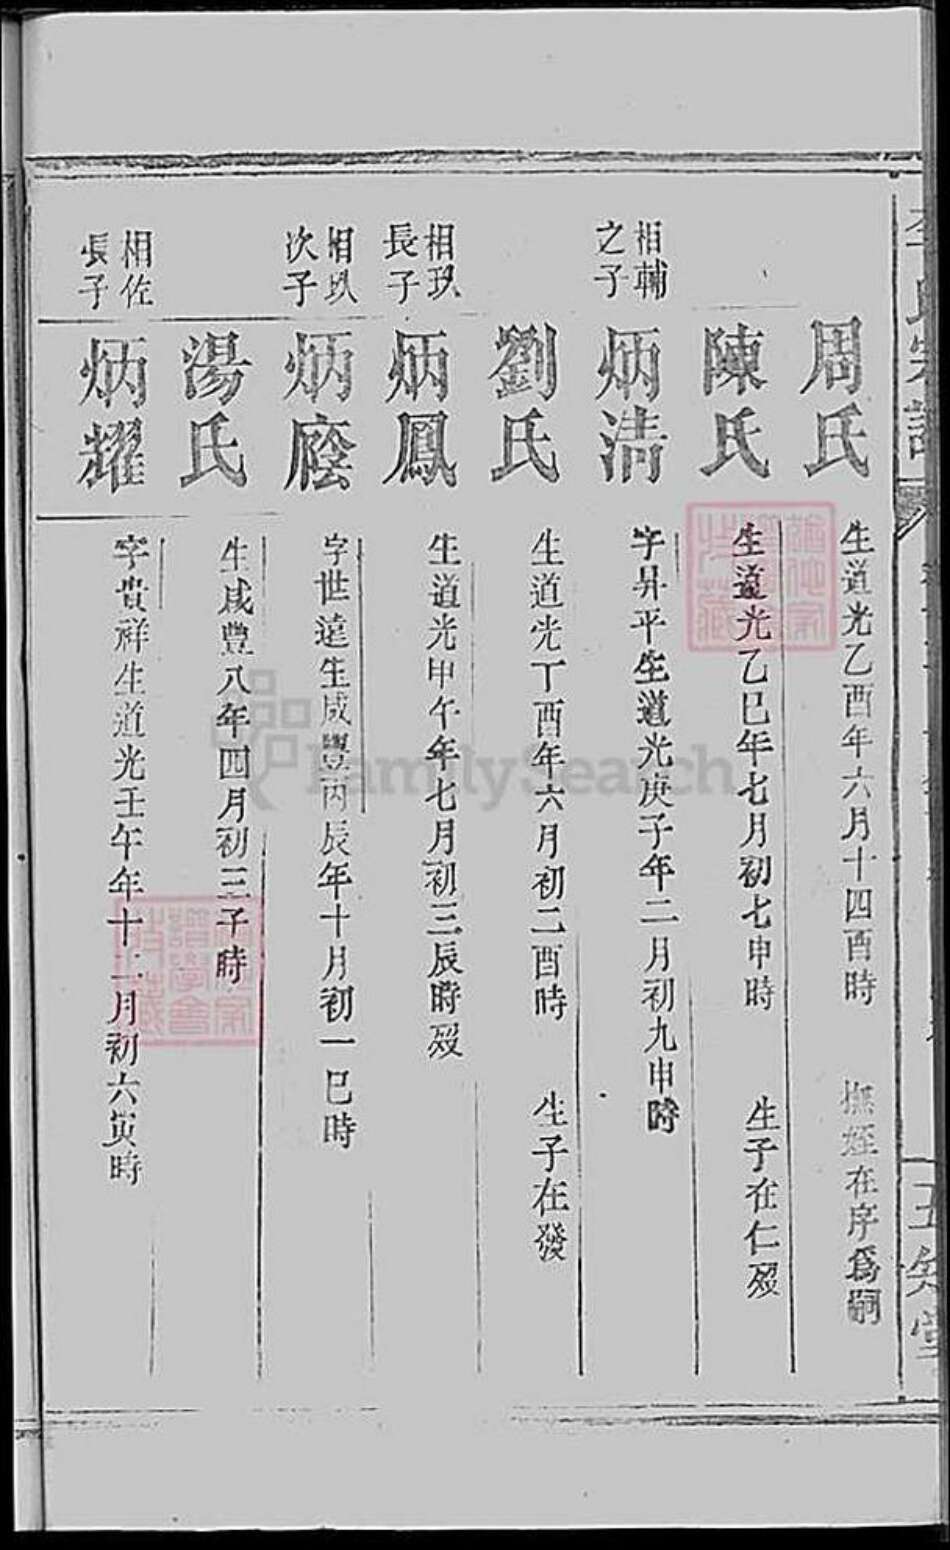 氏宗譜
周氏
生道光乙酉年六月十四酉時 撫姪在序爲嗣
陳氏
生道光乙巳年七月初七申時 生子在仁殁
相輔之子
炳清
字昇平生道光庚子年二月初九申時
劉氏
生道光丁酉年六月初二酉時 生子在發
相玖長子
炳鳳
生道光甲午年七月初三辰時殁
相玖次子
炳廕
字世遠生咸豐丙辰年十月初一巳時
湯氏
生咸豐八年四月初三子時
相佐長子
炳耀
字貴祥生道光壬午年十二月初六寅時
FamilySearch